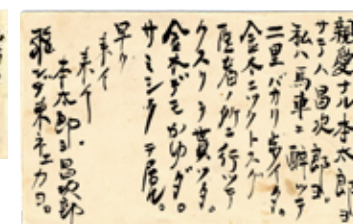 親愛ナル本太郎ヨ
サラバ昌次郎ヨ、
私ハ馬車ニ酔ッテ
二里バカリ歩イタ。
金木ニツクトスグ
医者ノ所ニ行ッテ
クスリヲ貰ッタ。
金木デモかゆダ。
サミシクテ居ル。
早ク
来イ
来イ
本太郎ヨ昌次郎
飛ンデ来ネエカヨ。